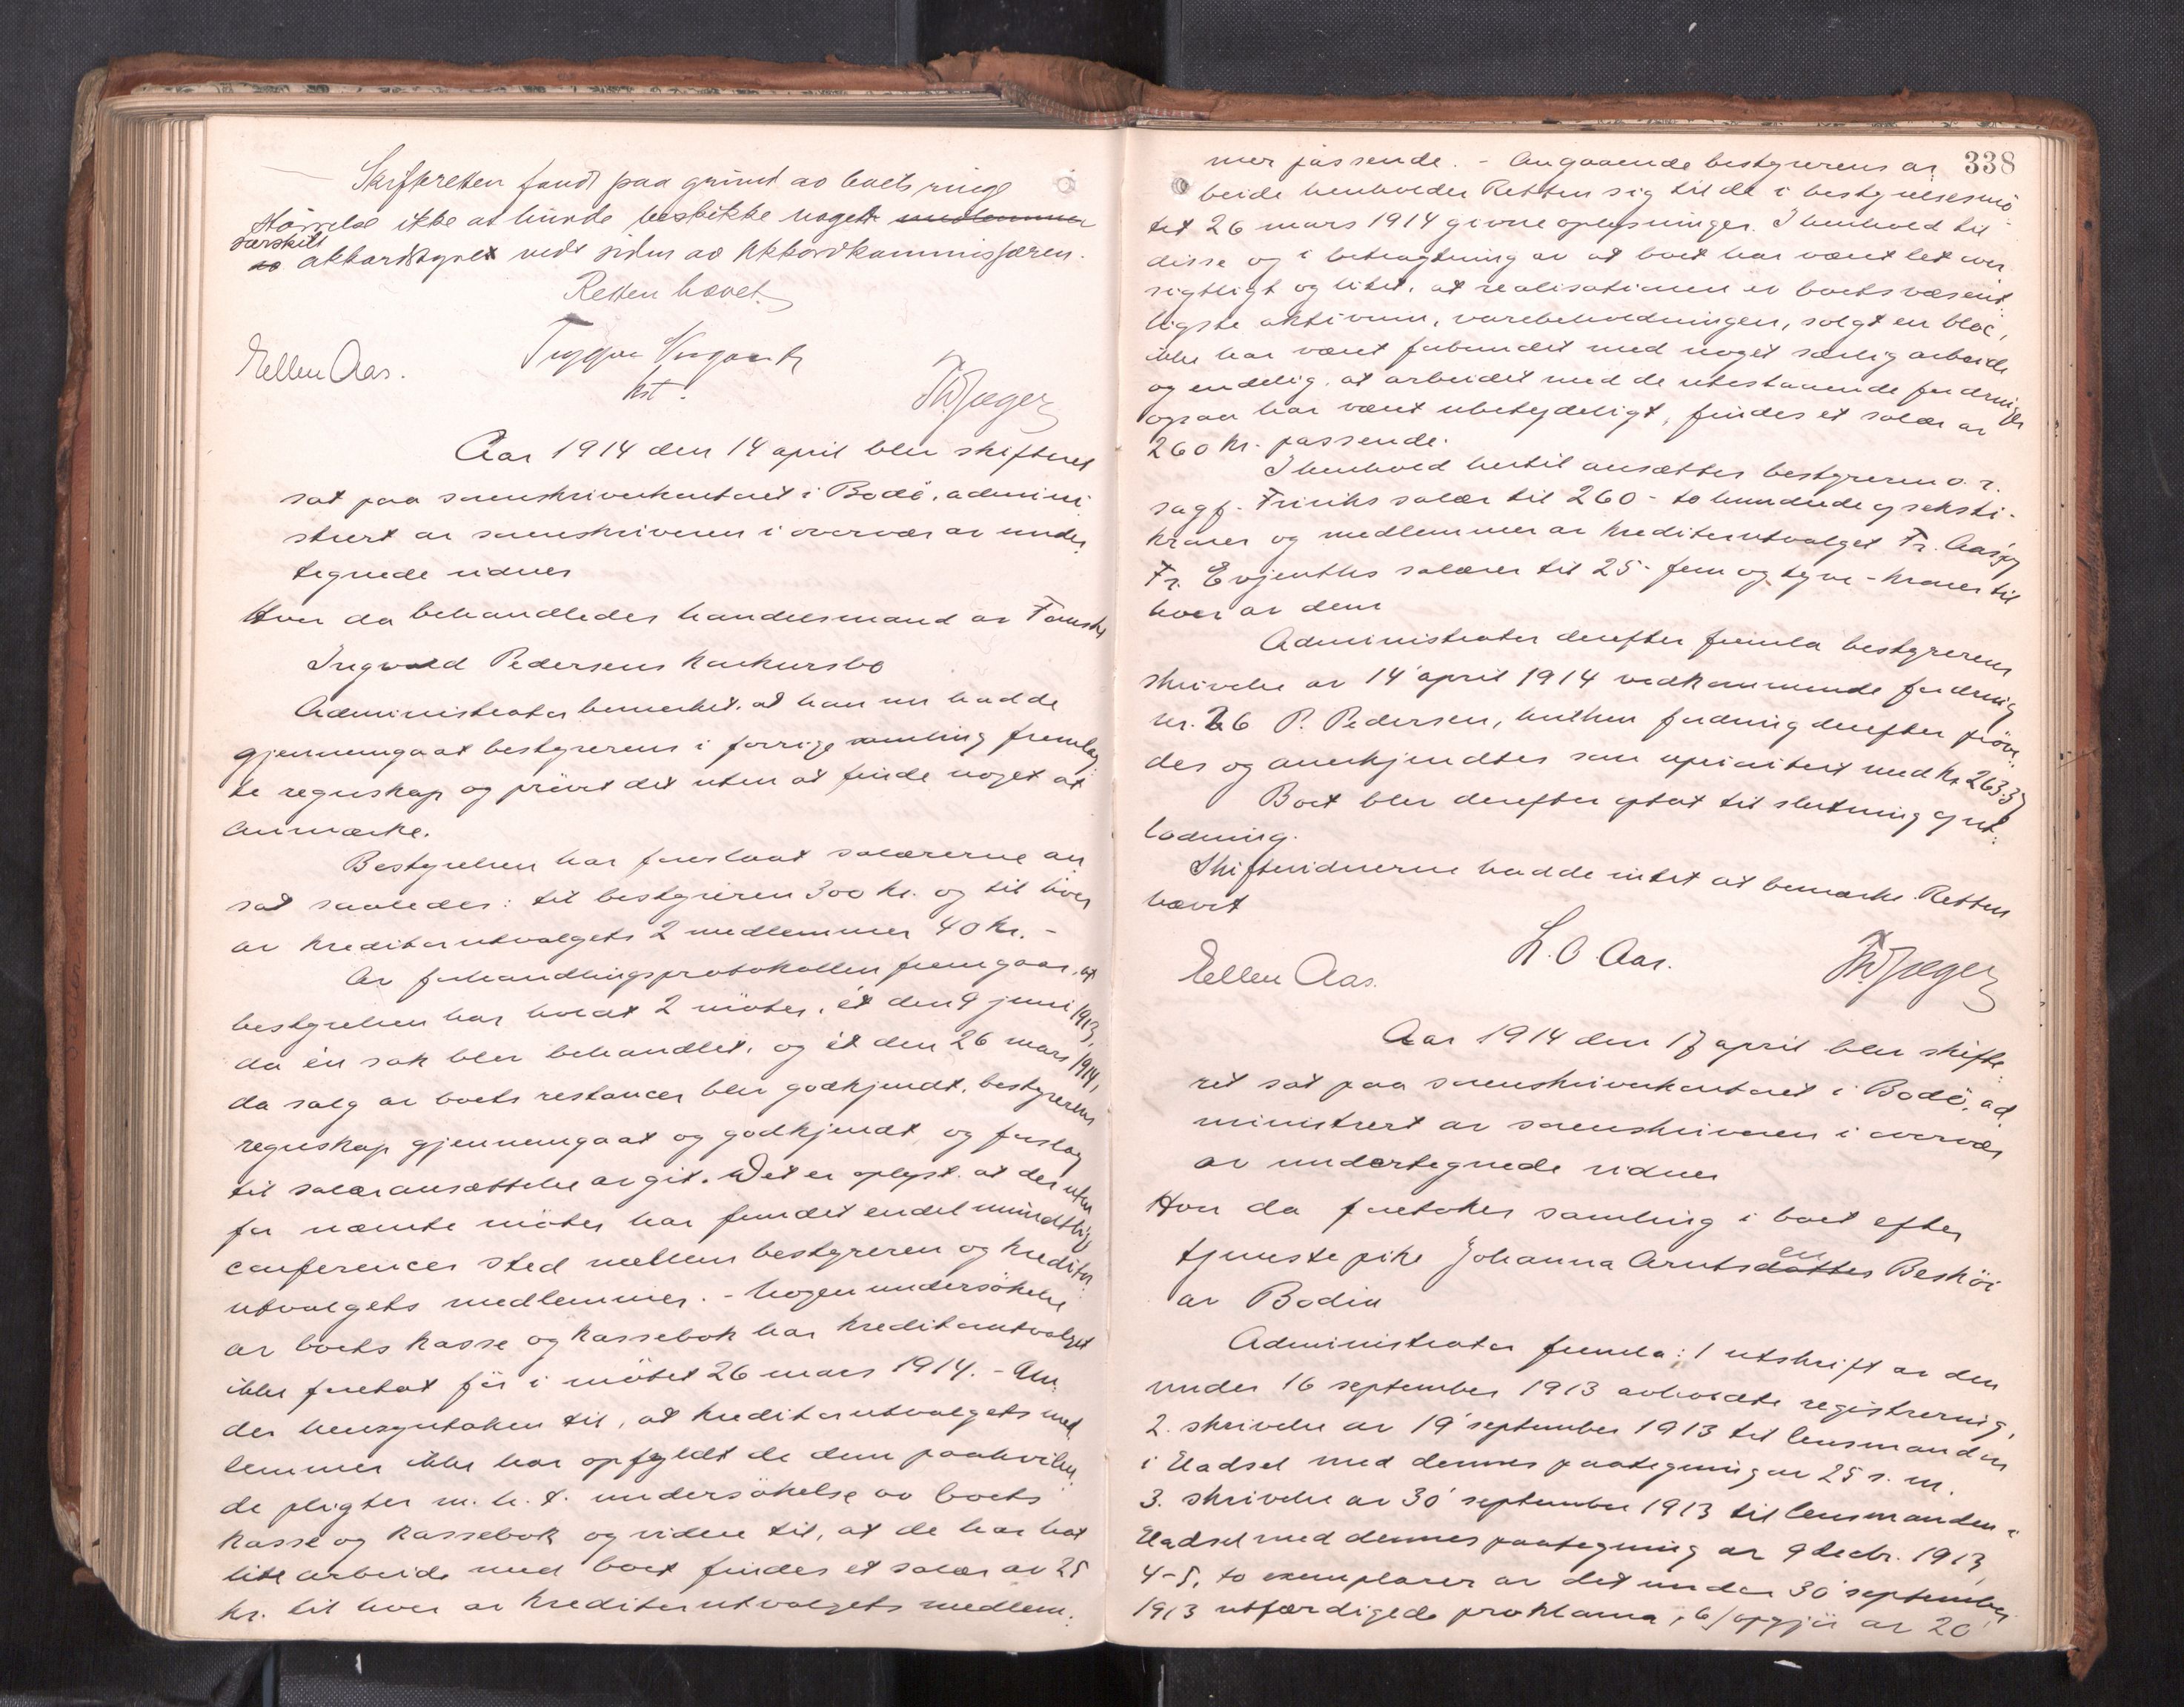 Skifteretten fandt paa grund av boets ringe
Størrelse ikke at burde beskikke noget medlemmer
særskilt
av akkordstyret ved siden av Akkordkommissæren.
Retten hævet.
Ellen Aas. Th Jæger
kst.
Aar 1914 den 14 april blev skifteret
sat paa sorenskriverkontoret i Bodö, admini
strert av sorenskriveren i overvær av under
tegnede vidner
Hvor da behandledes handelsmand av Fauske
Ingvald Pedersens konkursbo
Administrator bemerket, at han nu hadde
gjennemgaat bestyrerens i forrige samling fremlag
te regnskap og prövet det uten at finde noget at
anmærke.
Bestyrelsen har foreslaat salærerne an
sat saaledes: til bestyreren 300 kr. og til hver
av kreditorutvalgets 2 medlemmer 40 kr. -
Av forhandlingsprotokollen fremgaar, at
bestyrelsen har holdt 2 möter, ét den 9 juni 1913,
da én sak blev behandlet, og ét den 26 mars 1914,
da salg av boets restancer blev godkjendt, bestyrerens
regnskap gjennemgaat og godkjendt og forslag
til salæransættelse avgit. Det er oplyst, at der uten
for nævnte möter har fundet endel mundtlige
conferencer sted mellem bestyreren og kreditor
utvalgets medlemmer. - Nogen undersökelse
av boets kasse og kassebok har kreditorutvalget
ikke foretat för i mötet 26 mars 1914. - Un
der hensyntaken til, at kreditorutvalgets med
lemmer ikke har opfyldt de dem paahvilen
de pligter m. h. t. undersökelse av boets
kasse og kassebok og videre til, at de har hat
litet arbeide med boet findes et salær av 25
kr. til hver av kreditorutvalgets medlem.
338
mer passende. - Angaaende bestyrerens ar
beide henholder Retten sig til de i bestyrelsesmö
tet 26 mars 1914 givne oplysninger. I henhold til
disse og i betragtning av at boet har været let over
sigtligt og litet, at realisationen av boets væsent
ligste aktivum, varebeholdningen, solgt en bloc,
ikke har været forbundet med noget særlig arbeide
og endelig, at arbeidet med de utestaaende fordringer
ogsaa har været ubetydeligt, findes et salær av
260 kr. passende.
I henhold hertil ansættes bestyreren o. r.
sagf. Fririks salær til 260 - to hundrede og seksti -
kroner og medlemmer av kreditorutvalget Fr. Aas og
Fr. Evjenths salærer til 25 - fem og tyve - kroner til
hver av dem
Administrator derefter fremla bestyrerens
skrivelse av 14' april 1914 vedkommende fordring
nr. 26 P. Pedersen, hvilken fordring derefter pröve
des og anerkjendtes som uprioritert med kr. 263.37
Boet blev derefter optat til slutning og ut
lodning.
Skiftevidnerne hadde intet at bemærke. Retten
hævet
Ellen Aas. L. O. Aas. Th Jæger
Aar 1914 den 17 april blev skifte
ret sat paa sorenskriverkontoret i Bodö, ad
ministrert av sorenskriveren i overvær
av undertegnede vidner
Hvor da foretokes samling i boet efter
en
tjenestepike Johanna Arntsdatter Besköi
av Bodin
Administrator fremla: 1 utskrift av den
under 16 september 1913 avholdte registrering,
2. skrivelse av 19' september 1913 til lensmanden
i Hadsel med dennes paategning av 25 s. m.
3. skrivelse av 30' september 1913 til lensmanden i
Hadsel med dennes paategning av 9 decbr. 1913,
4-5, to exemplarer av det under 30' september
1913 utfærdigede proklama, 6/ opgjör av 20